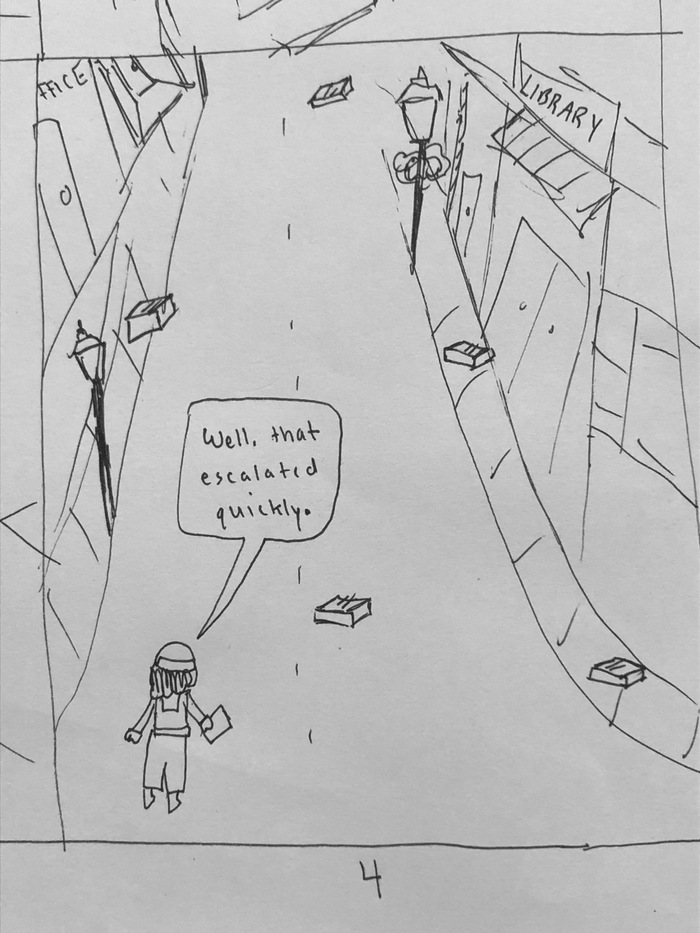 FFICE
LIBRARY
Well, that
escalated
quickly.
4